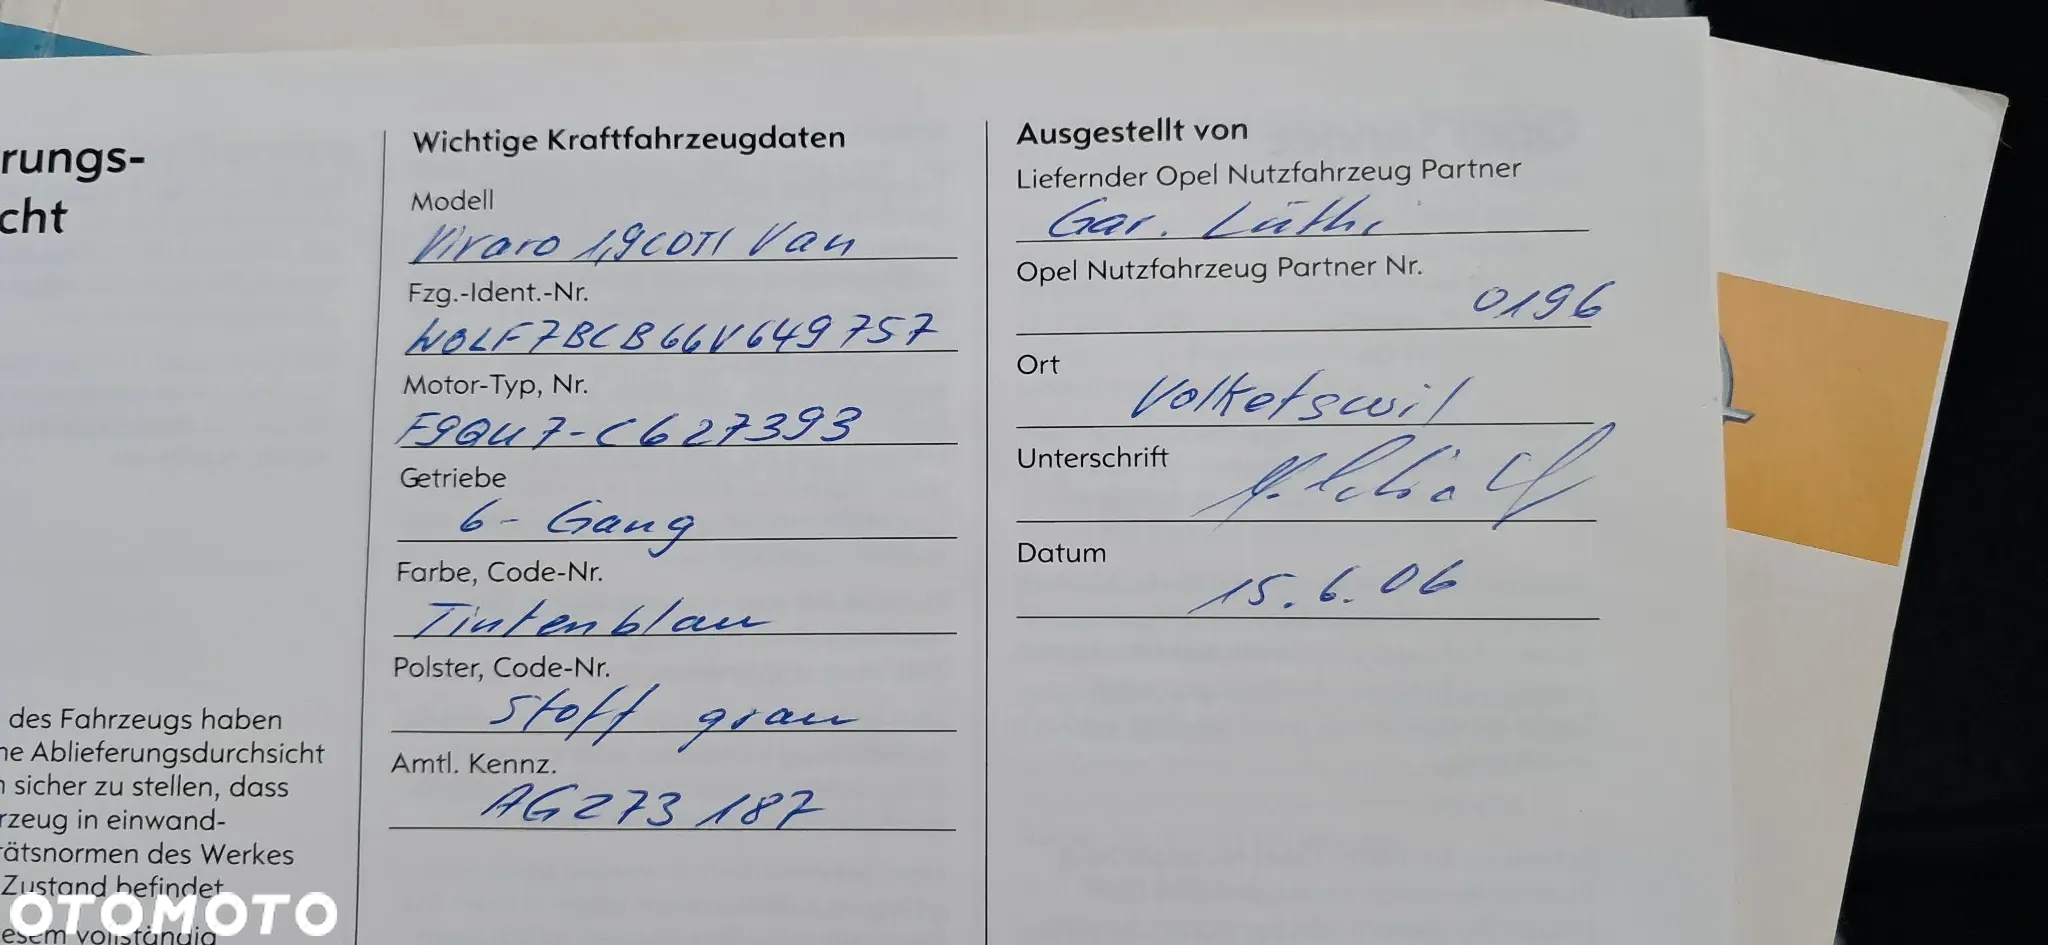 rungs-
cht
des Fahrzeugs haben
ne Ablieferungsdurchsicht
n sicher zu stellen, dass
rzeug in einwand-
rätsnormen des Werkes
Zustand befindet
esem vollständig
Wichtige Kraftfahrzeugdaten
Modell
Vivaro 1,9CDTI Van
Fzg.-Ident.-Nr.
W0LF7BCB66V649757
Motor-Typ, Nr.
F9QU7-C627393
Getriebe
6-Gang
Farbe, Code-Nr.
Tintenblau
Polster, Code-Nr.
Stoff grau
Amtl. Kennz.
AG273187
Ausgestellt von
Liefernder Opel Nutzfahrzeug Partner
Gar. Lüthi
Opel Nutzfahrzeug Partner Nr.
0196
Ort
Volketswil
Unterschrift
Datum
15.6.06
OTOMOTO